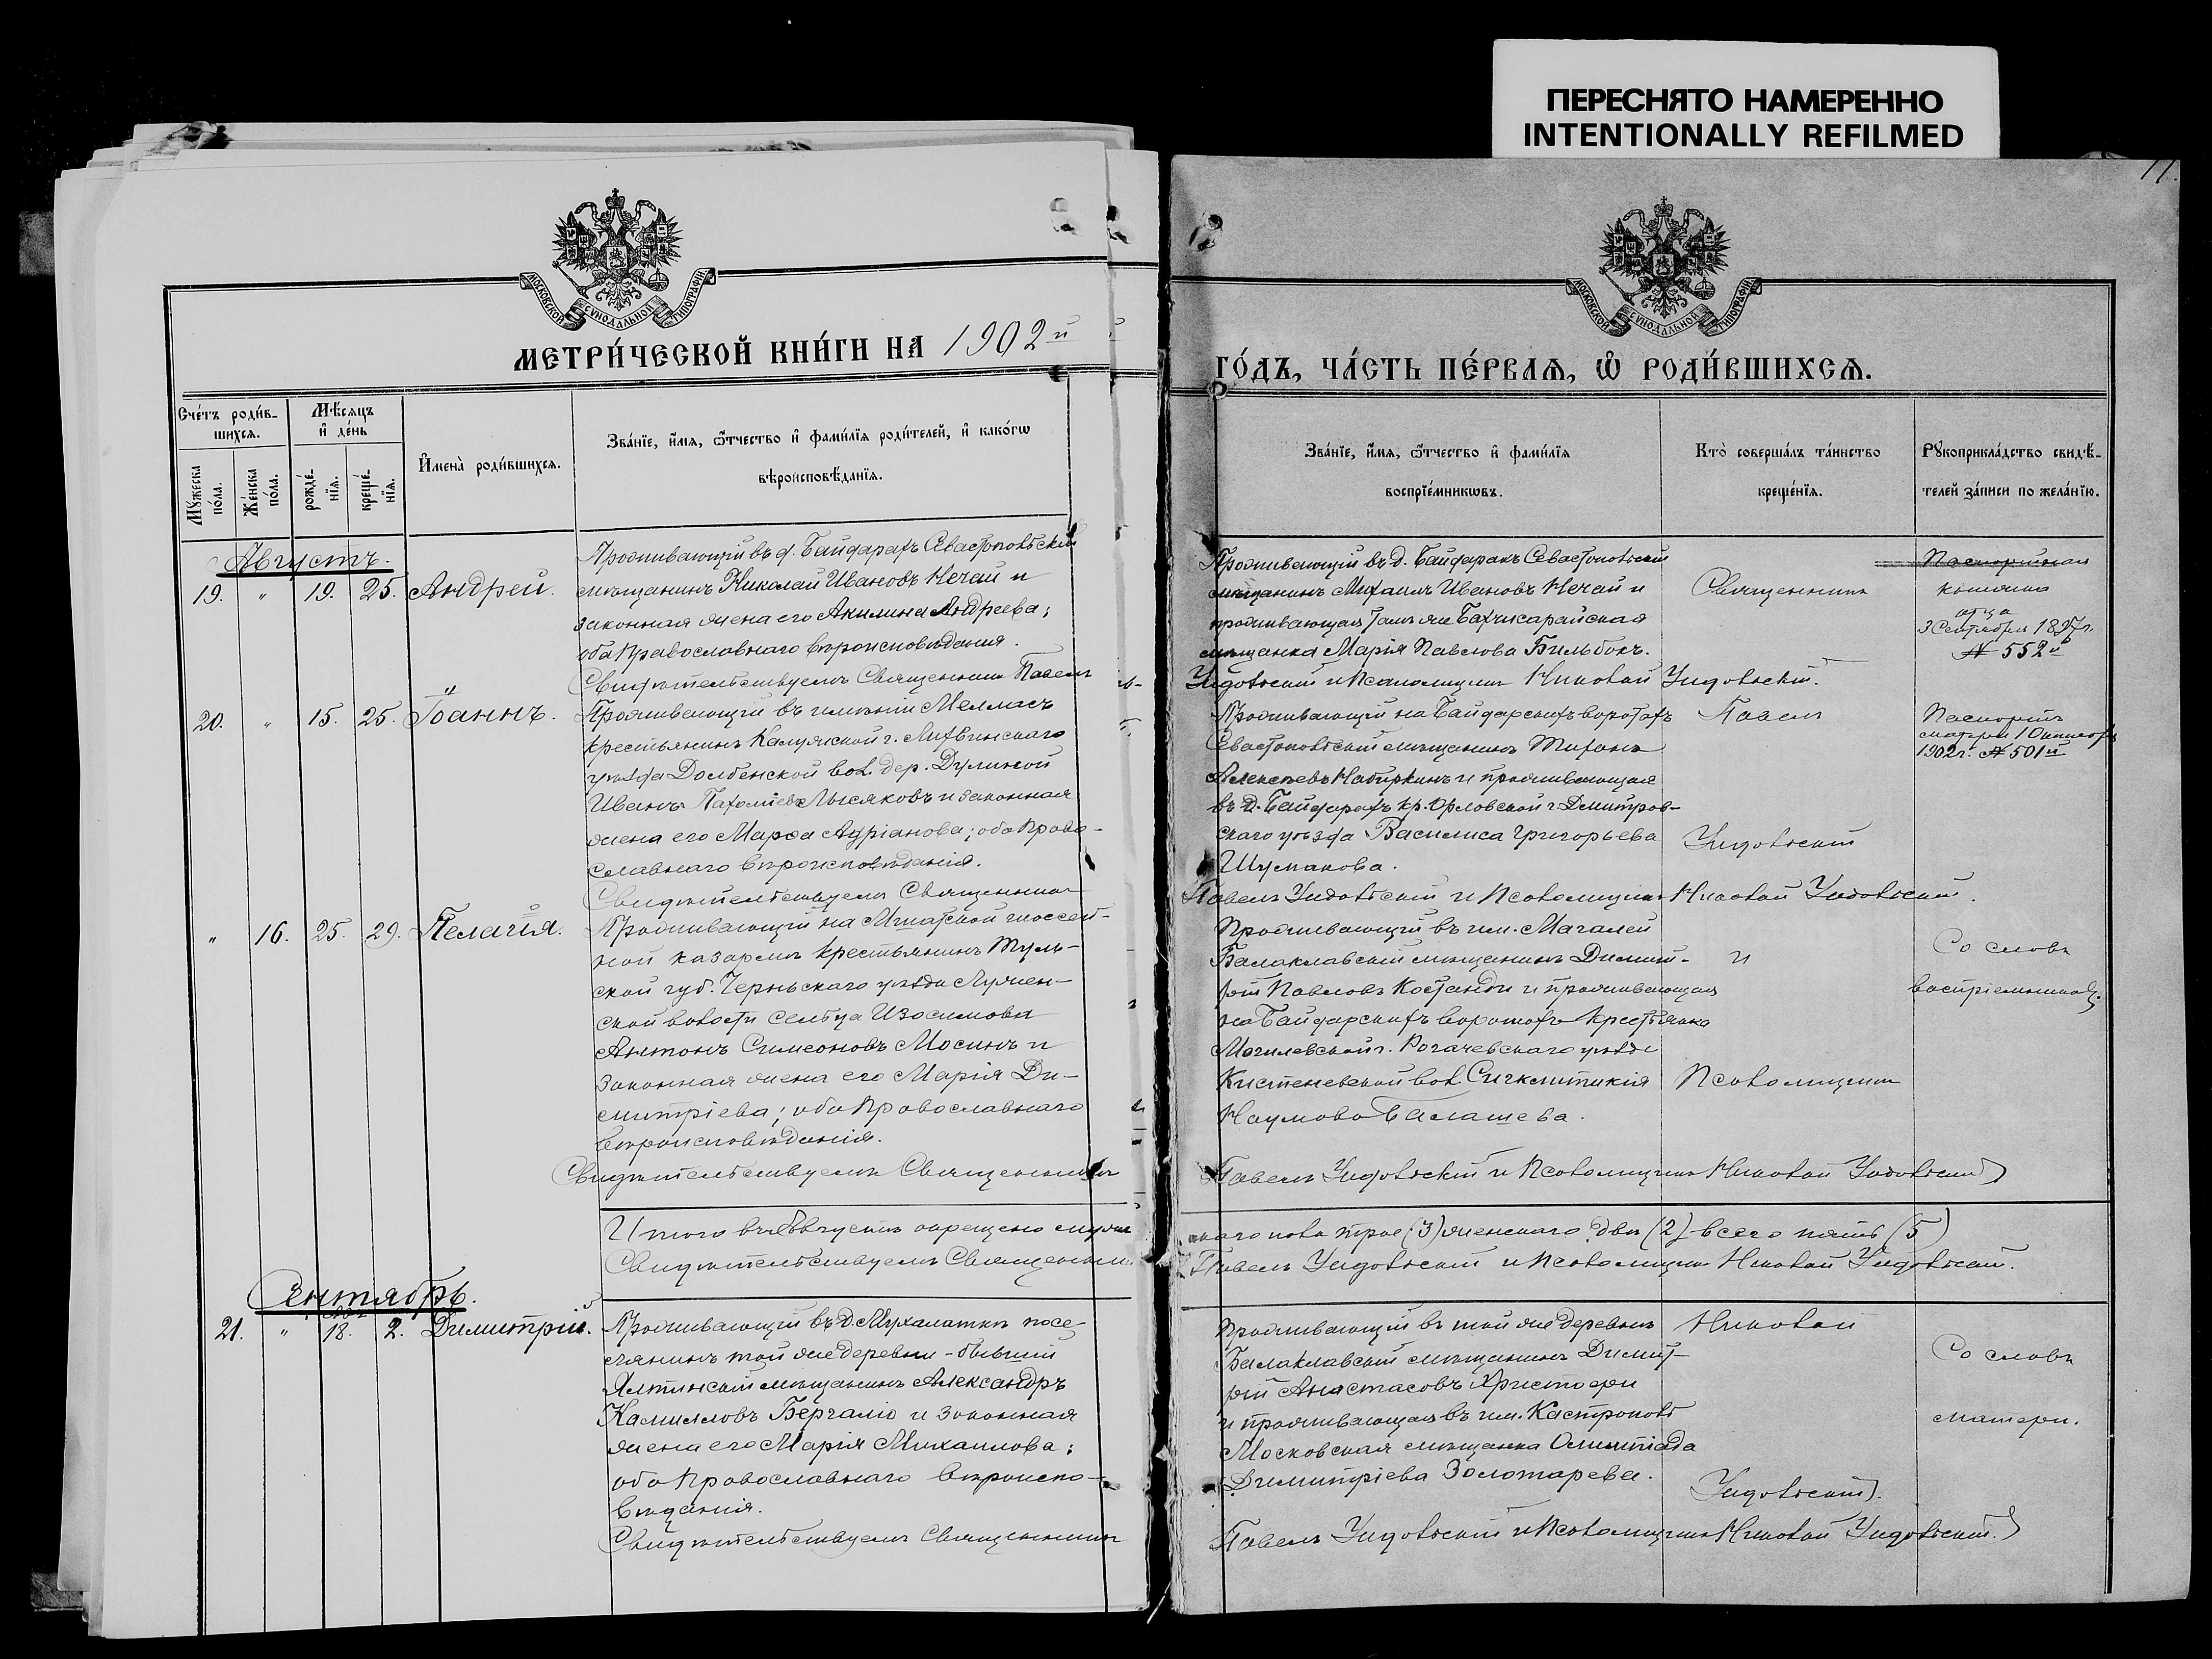 ПЕРЕСНЯТО НАМЕРЕННО
INTENTIONALLY REFILMED
МОСКОВСКОЙ СѴНОДАЛЬНОЙ ТИПОГРАФІИ
МОСКОВСКОЙ СѴНОДАЛЬНОЙ ТИПОГРАФІИ
МЕТРИ́ЧЕСКОЙ КНИ́ГИ НА 1902й
ГО́ДЪ, ЧА́СТЬ ПЕ́РВАѦ, Ѡ҆ РОДИ́ВШИХСѦ.
Сче́тъ роди́в-
шихсѧ.
Мѣ́сѧцъ
и҆ де́нь
Мꙋ́жеска
по́ла.
Же́нска
по́ла.
рожде́-
нїѧ.
креще́-
нїѧ.
И҆мена̀ роди́вшихсѧ.
Зва́нїе, и҆́мѧ, ѻ҆́тчество и҆ фами́лїѧ роди́телей, и҆ како́гѡ
вѣроисповѣ́данїѧ.
Зва́нїе, и҆́мѧ, ѻ҆́тчество и҆ фами́лїѧ
воспрїе́мникѡвъ.
Кто̀ соверша́лъ та́инство
креще́нїѧ.
Рꙋкоприкла́дство свидѣ́-
телей за́писи по жела́нїю.
Августъ.
19. " 19. 25. Андрей.
Проживающій въ д. Байдарахъ Севастопольскій
мѣщанинъ Николай Ивановъ Нечай и
законная жена его Акилина Андреева;
оба Православнаго вѣроисповѣданія.
Свидѣтельствуемъ Священникъ Павелъ
Проживающій въ д. Байдарахъ Севастопольскій
мѣщанинъ Михаилъ Ивановъ Нечай и
проживающая тамъ же Бахчисарайская
мѣщанка Марія Павлова Бильбокъ.
Ундольскій и Псаломщикъ Николай Ундольскій.
Священникъ
отца
3 Сентября 1897г.
№ 552й
20. " 15. 25. Іоаннъ.
Проживающій въ имѣніи Меласъ
крестьянинъ Калужской г. Лихвинскаго
уѣзда Долбенской вол. дер.
Иванъ Пахоміевъ Лысяковъ и законная
жена его Марѳа Адріанова; оба Право-
славнаго вѣроисповѣданія.
Свидѣтельствуемъ Священникъ
Проживающій на Байдарскихъ воротахъ
Севастопольскій мѣщанинъ Тихонъ
Алексѣевъ и проживающая
въ д. Байдарахъ кр. Орловской г. Дмитров-
скаго уѣзда Василиса Григорьева
Шумакова.
Павелъ Ундольскій и Псаломщикъ Николай Ундольскій.
Павелъ
Ундольскій
Паспортъ
матери 1 Октября
1902г. № 501й
" 16. 25. 29. Пелагія.
Проживающій на Мшатской шоссей-
ной казармѣ крестьянинъ Туль-
ской губ. Чернскаго уѣзда
ской волости сельца Изосимова
Антонъ Симеоновъ Мосинъ и
законная жена его Марія Ди-
митріева; оба Православнаго
вѣроисповѣданія.
Свидѣтельствуемъ Священникъ
Проживающій въ им. Магалей
Балаклавскій мѣщанинъ Димит-
рій Павловъ Костанди и проживающая
на Байдарскихъ воротахъ крестьянка
Могилевской г. Рогачевскаго уѣзда
Кистеневской вол. Сигклитикія
Наумова Балашева.
Павелъ Ундольскій и Псаломщикъ Николай Ундольскій
и
Псаломщикъ
Со словъ
воспріемниковъ.
Итого въ Августѣ окрещено муж-
скаго пола трое (3) женскаго двѣ (2) всего пять (5)
Свидѣтельствуемъ Священникъ
Павелъ Ундольскій и Псаломщикъ Николай Ундольскій.
Сентябрь.
21. " 18. 2. Димитрій.
Проживающій въ д. Мухалаткѣ посе-
лянинъ той же деревни - бывшій
Ялтинскій мѣщанинъ Александръ
Камилловъ Бергаліо и законная
жена его Марія Михаилова;
оба Православнаго вѣроиспо-
вѣданія.
Свидѣтельствуемъ Священникъ
Проживающій въ той же деревнѣ
Балаклавскій мѣщанинъ Димит-
рій Анастасовъ
и проживающая въ им. Кастрополь
Московская мѣщанка Олимпіада
Димитріева Золотарева.
Павелъ Ундольскій и Псаломщикъ Николай Ундольскій.
Николай
Ундольскій.
Со словъ
матери.